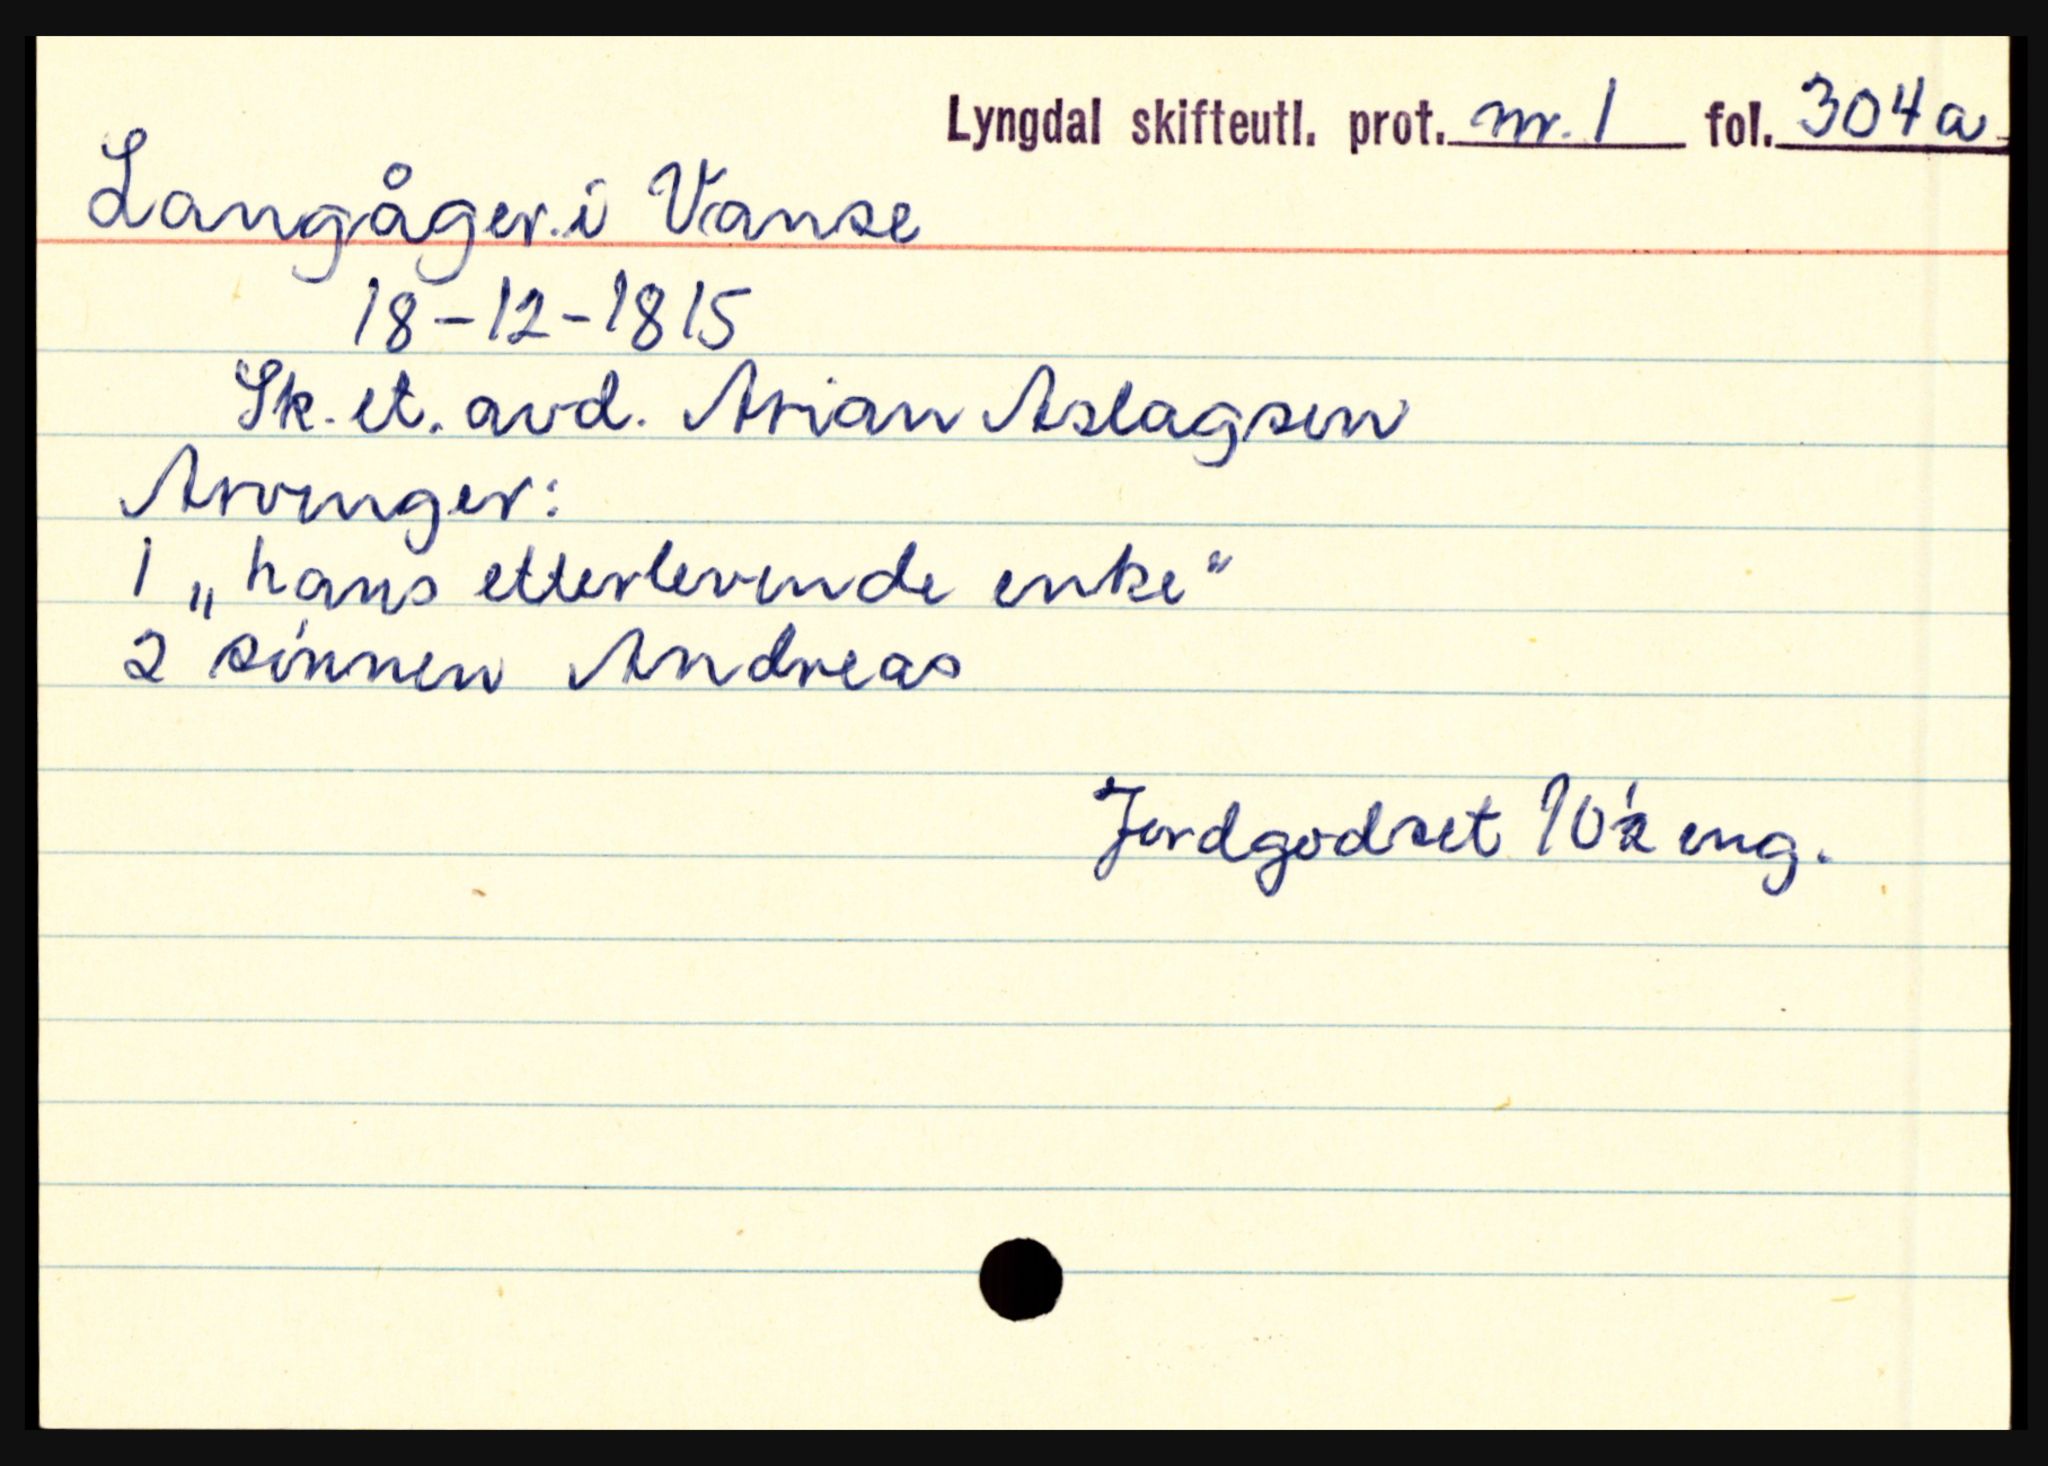 Lyngdal skifteutl. prot. nr. 1 fol. 304a
Langåger i Vanse
18-12-1815
Sk. et. avd. Arian Aslagsen
Arvinger:
1 „hans etterlevende enke“
2 sónnen Andreas
Jordgodset 10½ eng.